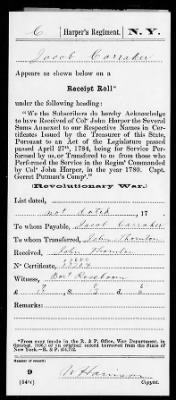 C | Harper's Regiment. | N. Y.
Jacob Carraker
Appears as shown below on a
Receipt Roll*
under the following heading:
"We the Subscribers do hereby Acknowledge
to have Received of Col° John Harper the Several
Sums Annexed to our Respective Names in Cer-
tificates Issued by the Treasurer of this State,
Pursuant to an Act of the Legislature passed
passed April 27th, 1784, being for Service Per-
formed by us, or Transfered to us from those who
Performed the Service in the Regimt Commanded
by Col° John Harper, in the year 1780. Capt.
Gerrit Putman's Compy."
(Revolutionary War.)
List dated,
not dated , 17
To whom Payable, Jacob Carraker
To whom Transferred, John Thornton
Received, John Thornton
N° Certificate,
Witness,
£
Remarks:
*From copy made in the R. & P. Office, War Department, in
9
(544) Copyist.